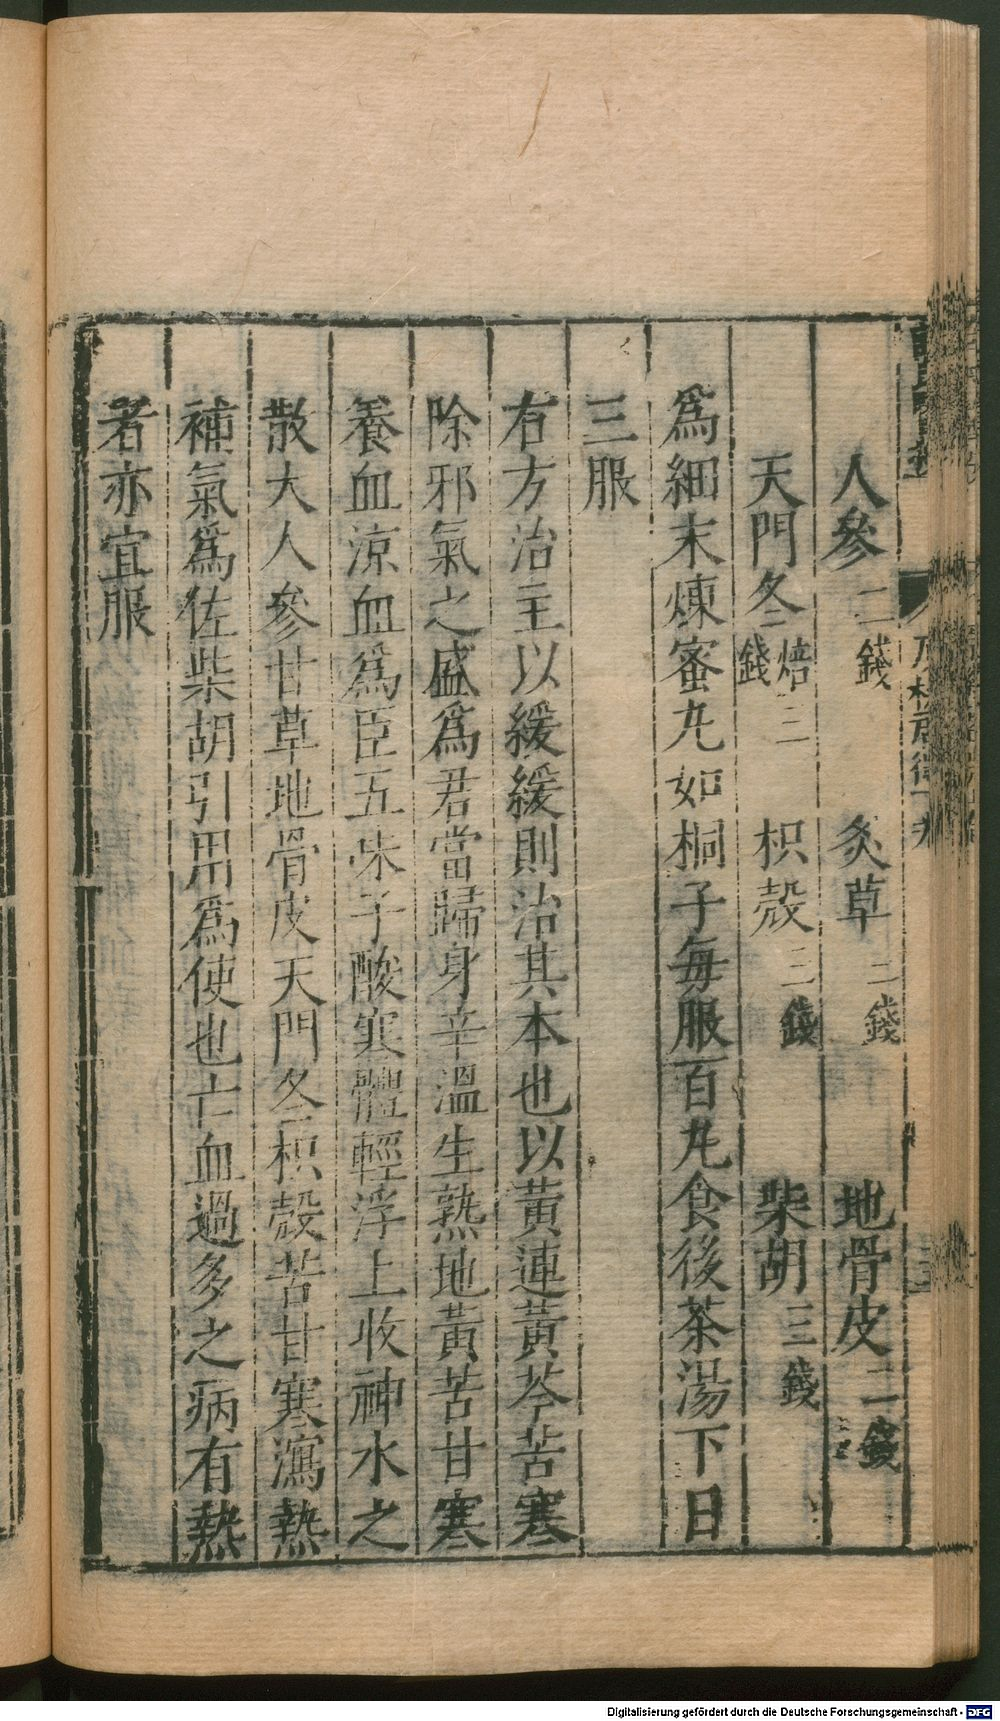 人參二錢 炙草二錢 地骨皮二錢
天門冬焙三錢 枳殼二錢 柴胡三錢
爲細末煉蜜丸如桐子每服百丸食後茶湯下日
三服
右方治主以緩緩則治其本也以黃連黃芩苦寒
除邪氣之盛爲君當歸身辛溫生熟地黃苦甘寒
養血涼血爲臣五味子酸寒體輕浮上收神水之
散大人參甘草地骨皮天門冬枳殼苦甘寒瀉熱
補氣爲佐柴胡引用爲使也亡血過多之病有熱
者亦宜服
Digitalisierung gefördert durch die Deutsche Forschungsgemeinschaft - DFG